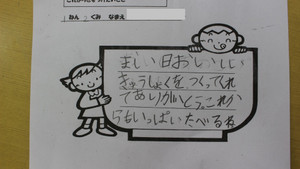 ねん　くみ　なまえ
まい日おいしい
きゅうしょくをつくってくれ
てありがとう。これか
らもいっぱいたべるね